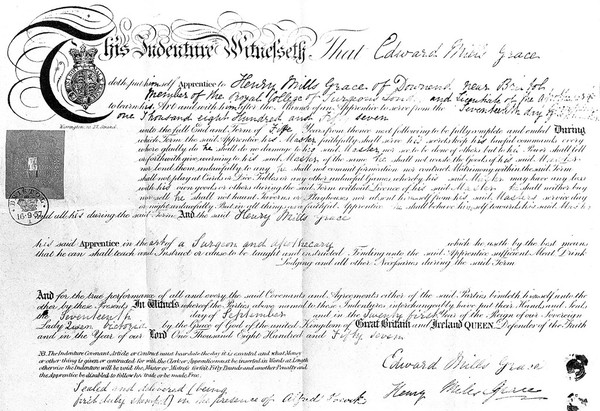 This Indenture Witnesseth, That Edward Mills Grace
doth put himself Apprentice to Henry Mills Grace of Downend near Bristol
Member of the Royal College of Surgeons Lond. and Licentiate of the Apothecaries
to learn his Art and with him after the Manner of an Apprentice to serve from the Seventeenth day of
One Thousand eight Hundred and Fifty seven
unto the full End and Term of Five Years from thence next following to be fully complete and ended During
which Term the said Apprentice his Master faithfully shall serve his secrets keep his lawful commands every
where gladly do he shall do no damage to his said Master nor see to be done of others but to his Power shall
forthwith give warning to his said Master of the same he shall not waste the Goods of his said Master
nor lend them unlawfully to any he shall not commit fornication nor contract Matrimony within the said Term
shall not play at Cards or Dice Tables or any other unlawful Games whereby his said Master may have any loss
with his own goods or others during the said Term without Licence of his said Master he shall neither buy
nor sell he shall not haunt Taverns or Playhouses nor absent himself from his said Masters service day
or night unlawfully But in all things as a faithful Apprentice he shall behave himself towards his said Master
and all his during the said Term And the said Henry Mills Grace
his said Apprentice in the art of a Surgeon and apothecary which he useth by the best means
that he can shall teach and Instruct or cause to be taught and instructed Finding unto the said Apprentice sufficient Meat Drink
Lodging and all other Necessaries during the said Term
And for the true performance of all and every the said Covenants and Agreements either of the said Parties bindeth himself unto the
other by these Presents In Witness whereof the Parties above named to these Indentures interchangeably have put their Hands and Seals
the Seventeenth day of September and in the twenty first Year of the Reign of our Sovereign
Lady Queen Victoria by the Grace of God of the united Kingdom of Great Britain and Ireland QUEEN Defender of the Faith
and in the Year of our Lord One Thousand Eight Hundred and Fifty seven
NB. The Indenture Covenant Article or Contract must bear date the day it is executed and what Money
or other thing is given or contracted for with the Clerk or Apprentice must be inserted in Words at Length
otherwise the Indenture will be void the Master or Mistress forfeit Fifty Pounds and another Penalty and
the Apprentice be disabled to follow his trade or be made Free.
Edward Mills Grace
Henry Mills Grace
Sealed and delivered (being
first duly stamped) in the presence of Alfred Pocock